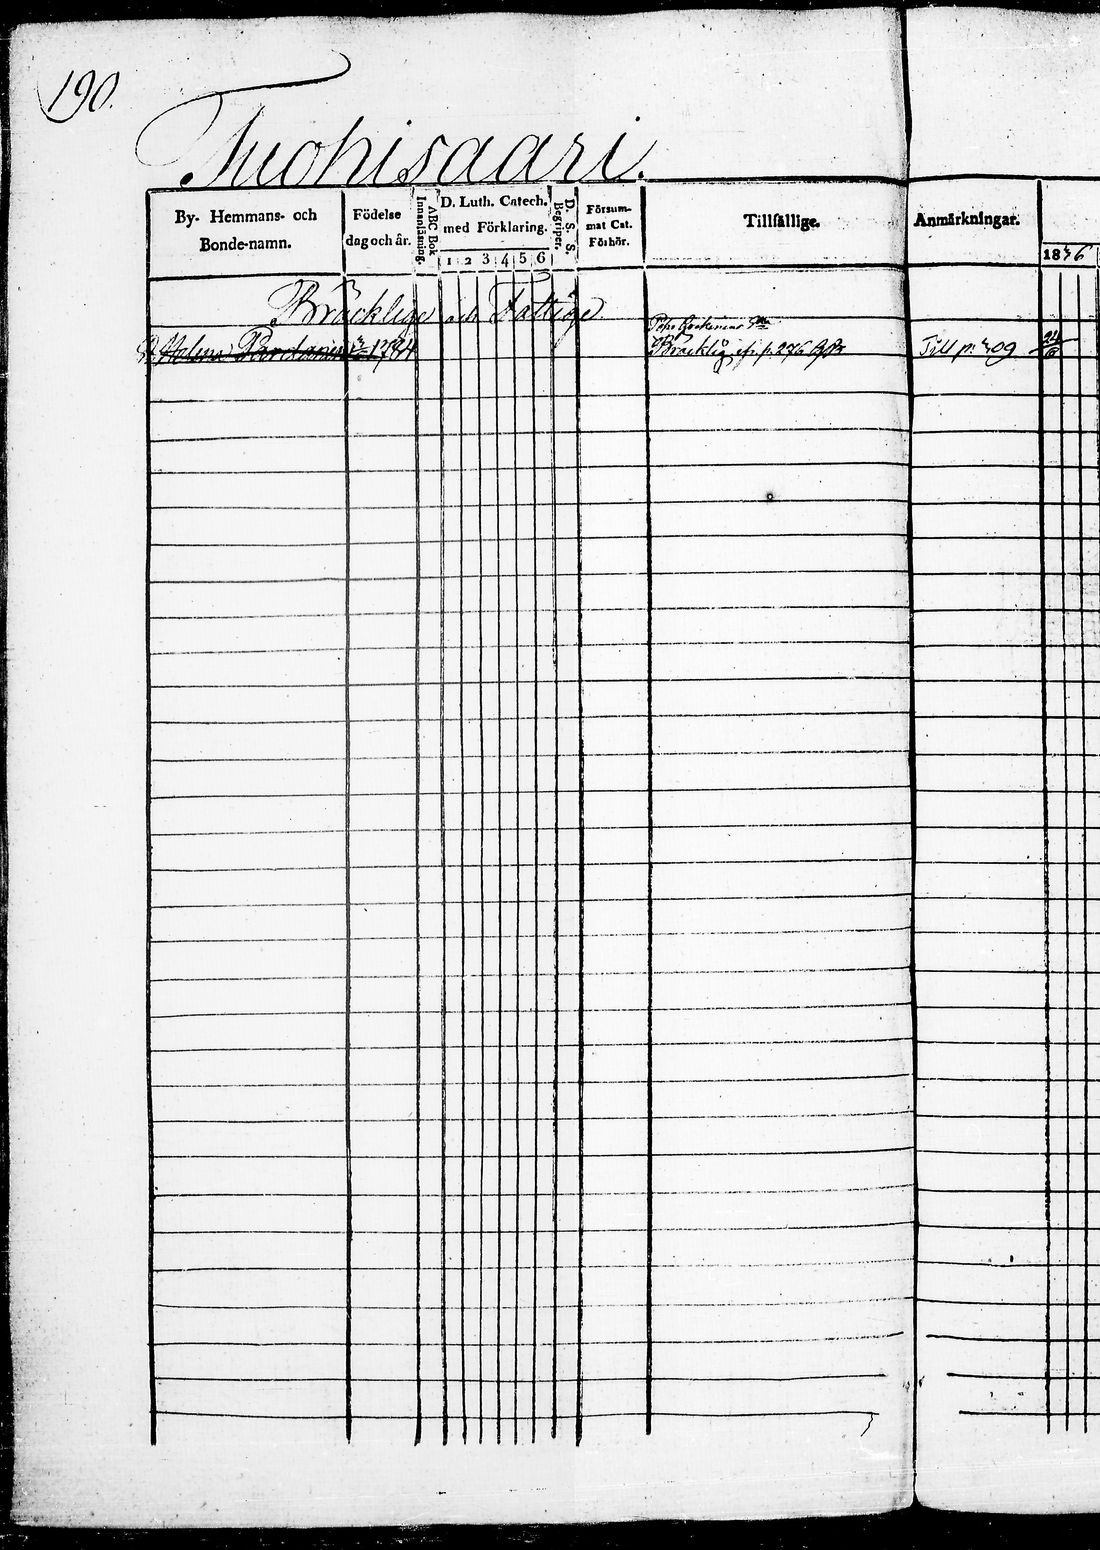 190.
Tuohisaari.
By- Hemmans- och Bonde-namn.
Födelse dag och år.
ABC Bok Innanläsning.
D. Luth. Catech. med Förklaring.
1 2 3 4 5 6
D. S. S. Begriper.
Försummat Cat. Förhör.
Tillfällige.
Anmärkningar.
1836
Bräcklige och Fattige
Helena 1784
Bräcklig p. 276
Till p. 309